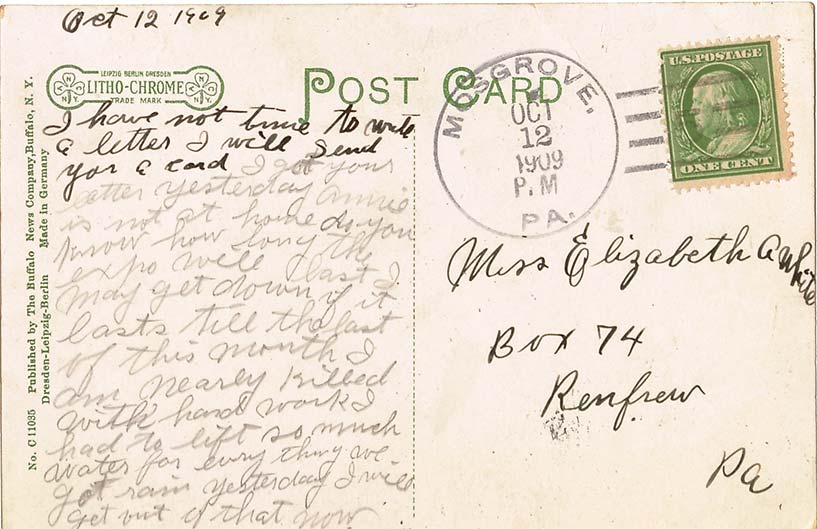 Oct 12 1909
LEIPZIG BERLIN DRESDEN
LITHO-CHROME
TRADE MARK
N Y N Y
N Y N Y
POST CARD
MOSGROVE.
OCT
12
1909
P.M
PA.
U.S. POSTAGE
ONE CENT
I have not time to write
a letter I will Send
yor a card I got your
letter yesterday Annie
is not at home do you
know how long the
expo will last I
may get down if it
lasts till the last
of this month I
am nearly killed
with hard work I
had to lift so much
water for every thing we
got rain yesterday I will
get out of that now
Miss Elizabeth A White
Box 74
Renfrew
Pa
No. C 11035 Published by The Buffalo News Company, Buffalo, N. Y.
Dresden-Leipzig-Berlin Made in Germany